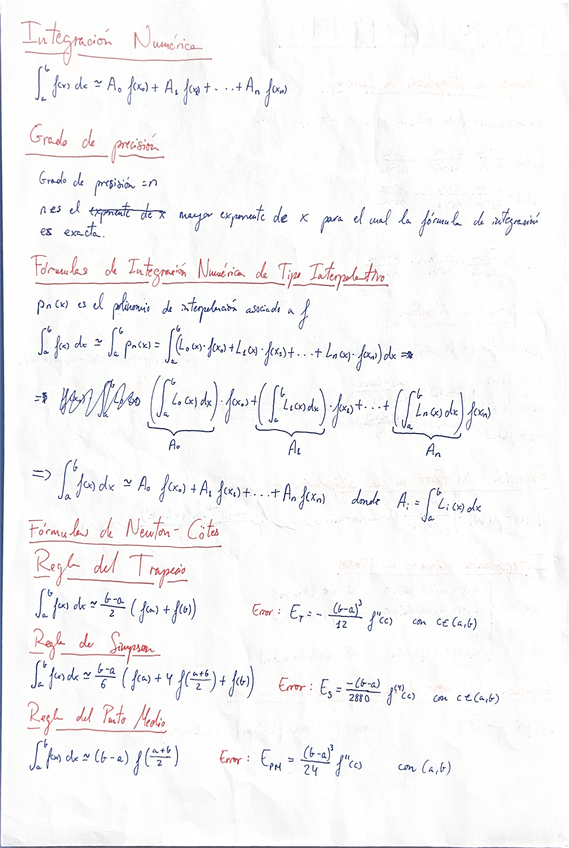 Integración Numérica
∫_a^b f(x) dx ≃ A₀ f(x₀) + A₁ f(x₁) + ... + Aₙ f(xₙ)
Grado de precisión
Grado de precisión = n
n es el exponente de x mayor exponente de x para el cual la fórmula de integración
es exacta.
Fórmulas de Integración Numérica de Tipo Interpolativo
pₙ(x) es el polinomio de interpolación asociado a f
∫_a^b f(x) dx ≃ ∫_a^b pₙ(x) = ∫_a^b (L₀(x)·f(x₀) + L₁(x)·f(x₁) + ... + Lₙ(x)·f(xₙ)) dx =
= (∫_a^b L₀(x) dx)·f(x₀) + (∫_a^b L₁(x) dx)·f(x₁) + ... + (∫_a^b Lₙ(x) dx) f(xₙ)
A₀ A₁ Aₙ
=> ∫_a^b f(x) dx ≃ A₀ f(x₀) + A₁ f(x₁) + ... + Aₙ f(xₙ) donde Aᵢ = ∫_a^b Lᵢ(x) dx
Fórmulas de Newton-Côtes
Regla del Trapecio
∫_a^b f(x) dx ≃ (b-a)/2 (f(a) + f(b)) Error: E_T = - (b-a)³/12 f''(c) con c∈(a,b)
Regla de Simpson
∫_a^b f(x) dx ≃ (b-a)/6 (f(a) + 4 f((a+b)/2) + f(b)) Error: E_S = -(b-a)/2880 f⁽⁴⁾(c) con c∈(a,b)
Regla del Punto Medio
∫_a^b f(x) dx ≃ (b-a) f((a+b)/2) Error: E_PM = (b-a)³/24 f''(c) con (a,b)